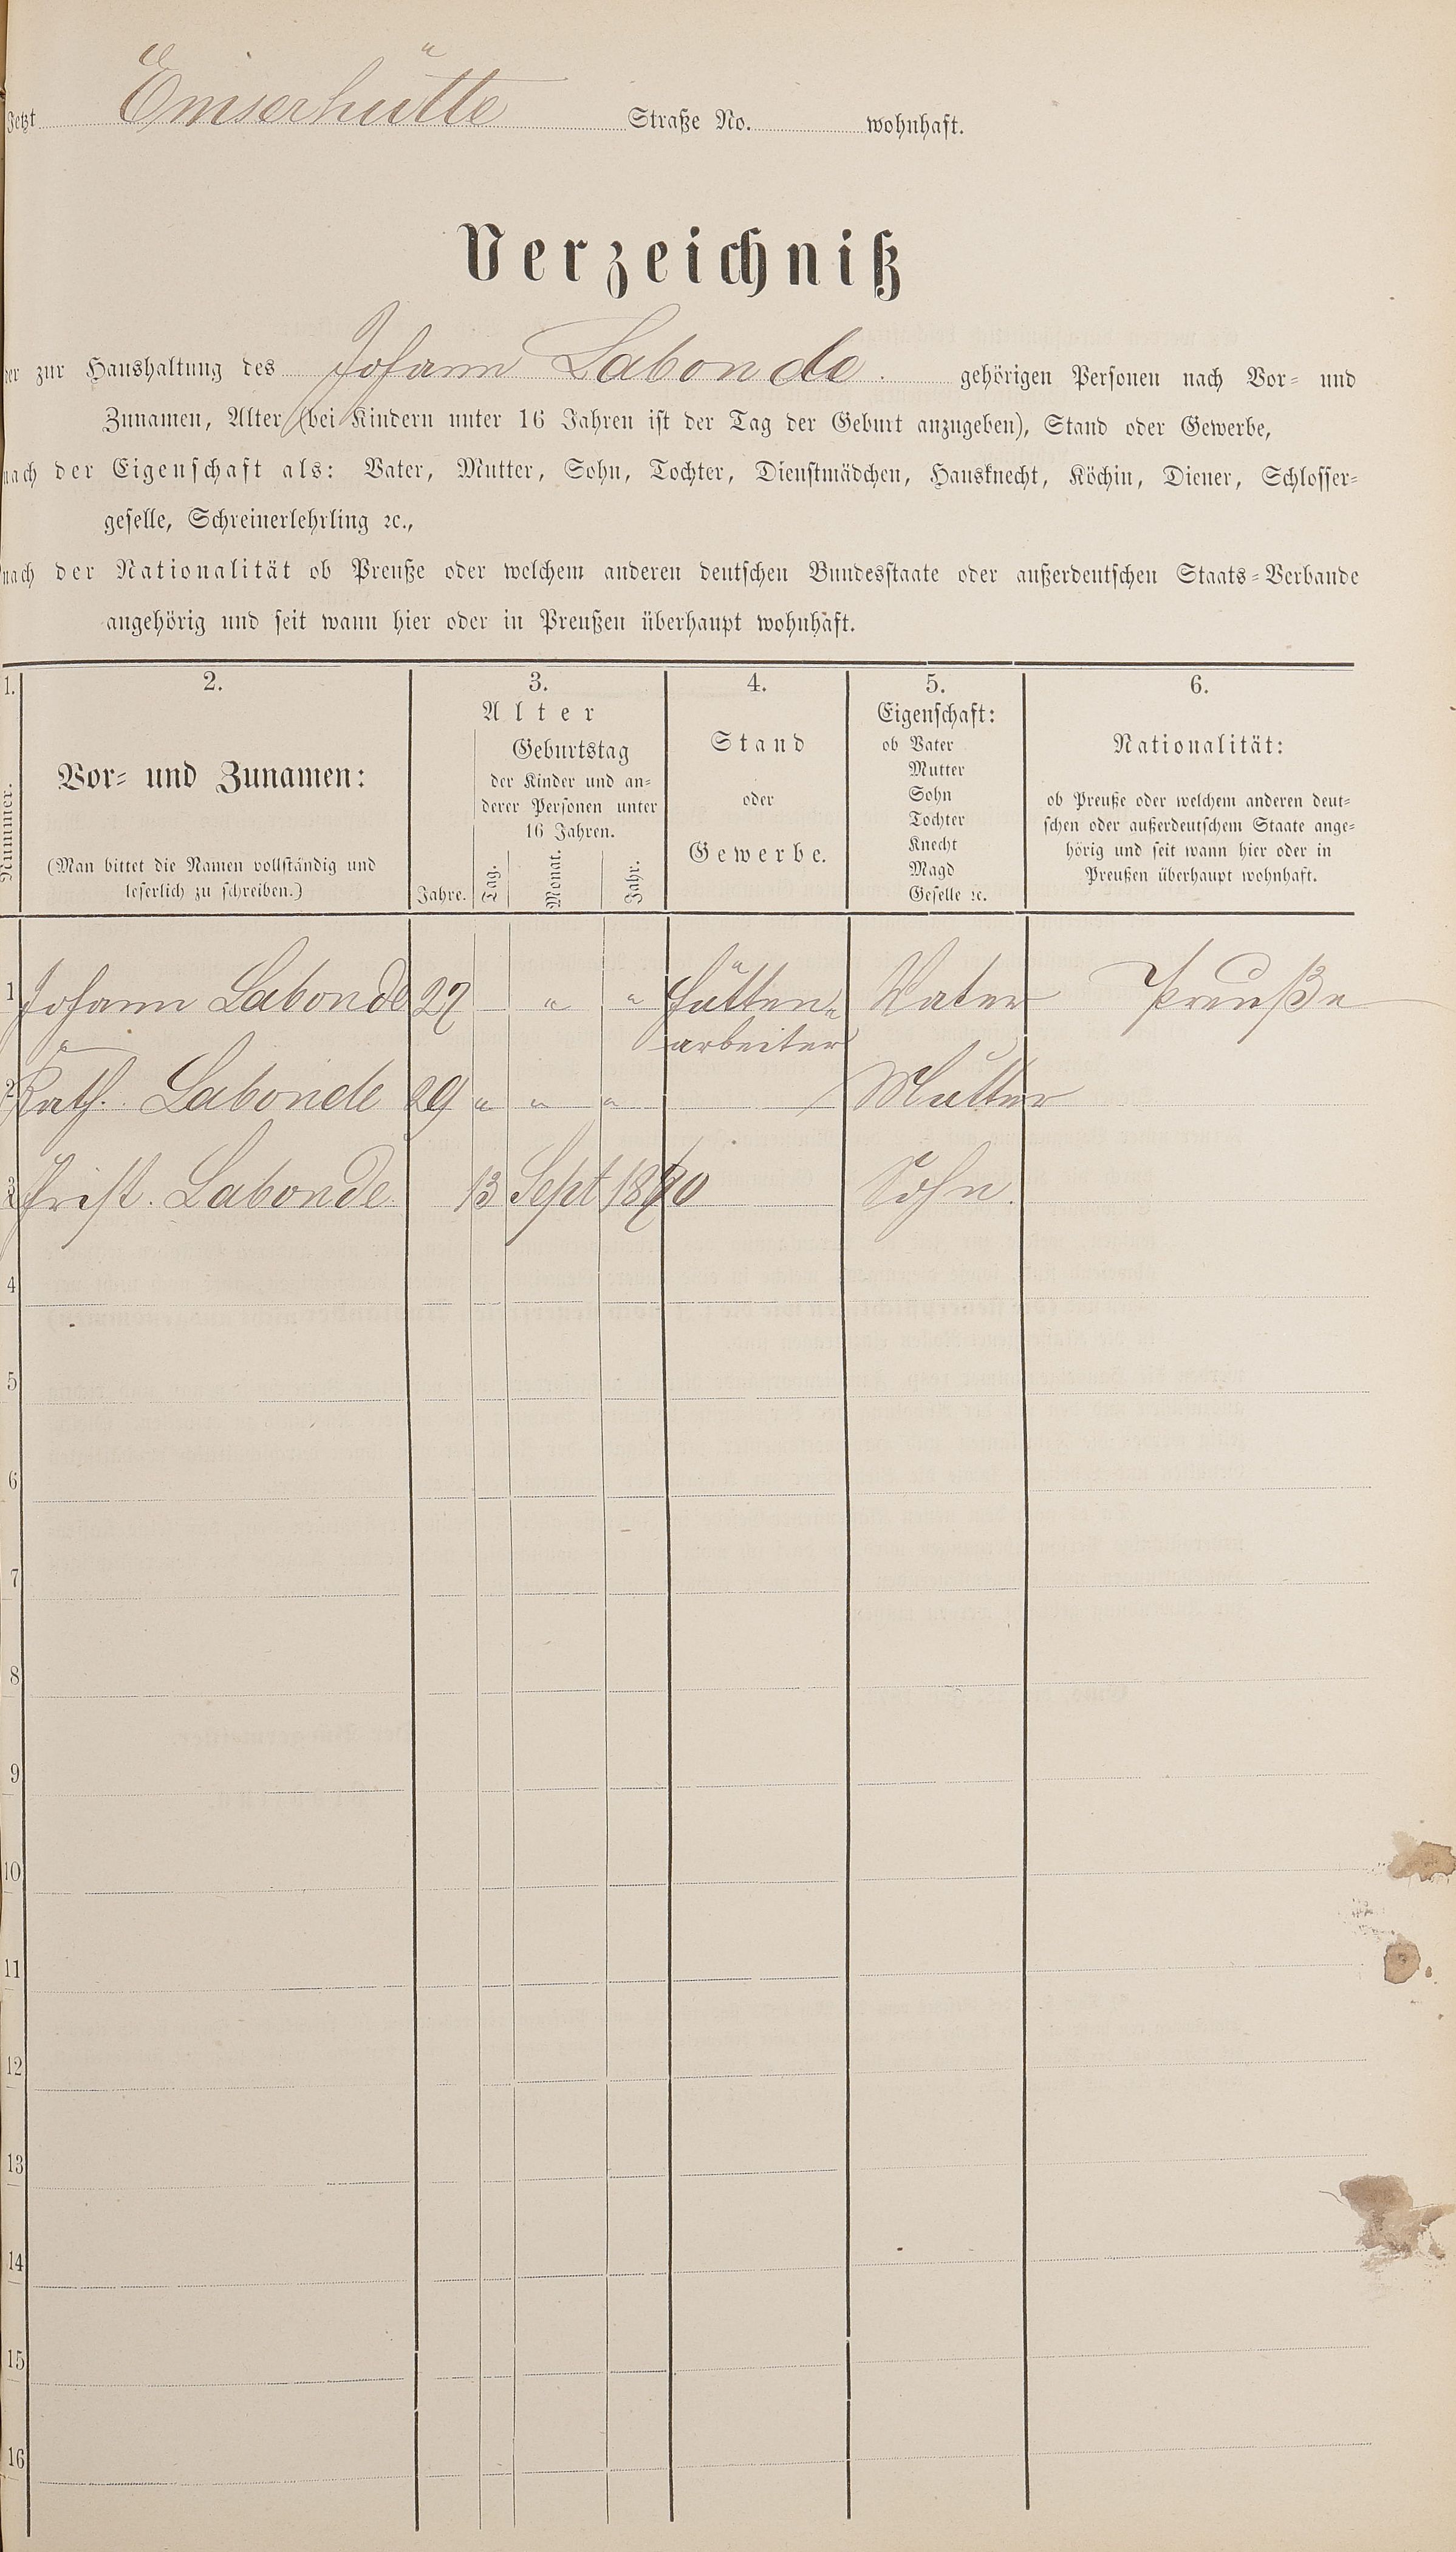 Jetzt Emserhütte Straße No. wohnhaft.
Verzeichniß
der zur Haushaltung des Johann Labonde. gehörigen Personen nach Vor- und
Zunamen, Alter (bei Kindern unter 16 Jahren ist der Tag der Geburt anzugeben), Stand oder Gewerbe,
nach der Eigenschaft als: Vater, Mutter, Sohn, Tochter, Dienstmädchen, Hausknecht, Köchin, Diener, Schlosser-
geselle, Schreinerlehrling ꝛc.,
nach der Nationalität ob Preuße oder welchem anderen deutschen Bundesstaate oder außerdeutschen Staats-Verbande
angehörig und seit wann hier oder in Preußen überhaupt wohnhaft.
1. 2. 3. 4. 5. 6.
Nummer.
Vor- und Zunamen:
(Man bittet die Namen vollständig und
leserlich zu schreiben.)
Alter
Jahre.
Geburtstag
der Kinder und an-
derer Personen unter
16 Jahren.
Tag. Monat. Jahr.
Stand
oder
Gewerbe.
Eigenschaft:
ob Vater
Mutter
Sohn
Tochter
Knecht
Magd
Geselle ꝛc.
Nationalität:
ob Preuße oder welchem anderen deut-
schen oder außerdeutschem Staate ange-
hörig und seit wann hier oder in
Preußen überhaupt wohnhaft.
1 Johann Labonde 27 " " Hütten- Vater Preuße
arbeiter
2 Kath. Labonde 29 " " " Mutter
3 Labonde. 13 Sept Sohn.
4
5
6
7
8
9
10
11
12
13
14
15
16